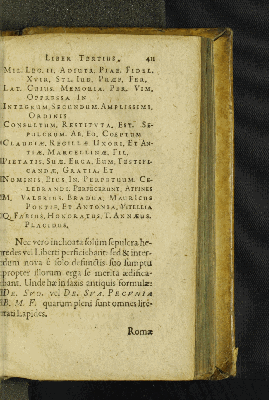 LIBER TERTIUS. 411
MIL. LEG. II. ADIUTR. PIAE. FIDEL.
XVIR. STL. IUD. PRÆF. FER.
LAT. CUIUS. MEMORIA. PER. VIM.
OPPRESSA. IN
INTEGRUM. SECUNDUM. AMPLISSIMI.
ORDINIS
CONSULTUM. RESTITUTA. EST. SE-
PULCRUM. AB. EO. COEPTUM
CLAUDIÆ. REGILLÆ UXORI, ET AN-
TIÆ. MARCELLINÆ. FIL.
PIETATIS. SUÆ. ERGA. EUM. JUSTIFI-
CANDÆ, GRATIA. ET
NOMINIS. EIUS IN. PERPETUUM. CE-
LEBRANDI. PERFECERUNT. AFFINES
M. VALERIUS. BRADUA. MAURICUS
PONTIF. ET ANTONIA. VITELLIA
Q. FABIUS. HONORATUS. T. ANNÆUS.
PLACIDUS.
Nec vero inchoata solum sepulcra he-
redes vel Liberti perficiebant: sed & inter-
dum nova è solo defunctis suo sumptu
propter illorum erga se merita ædifica-
bant. Unde hæ in saxis antiquis formulæ:
DE. SUO. vel DE. SUA. PECUNIA
B. M. F. quarum pleni sunt omnes lite-
rati Lapides.
Romæ